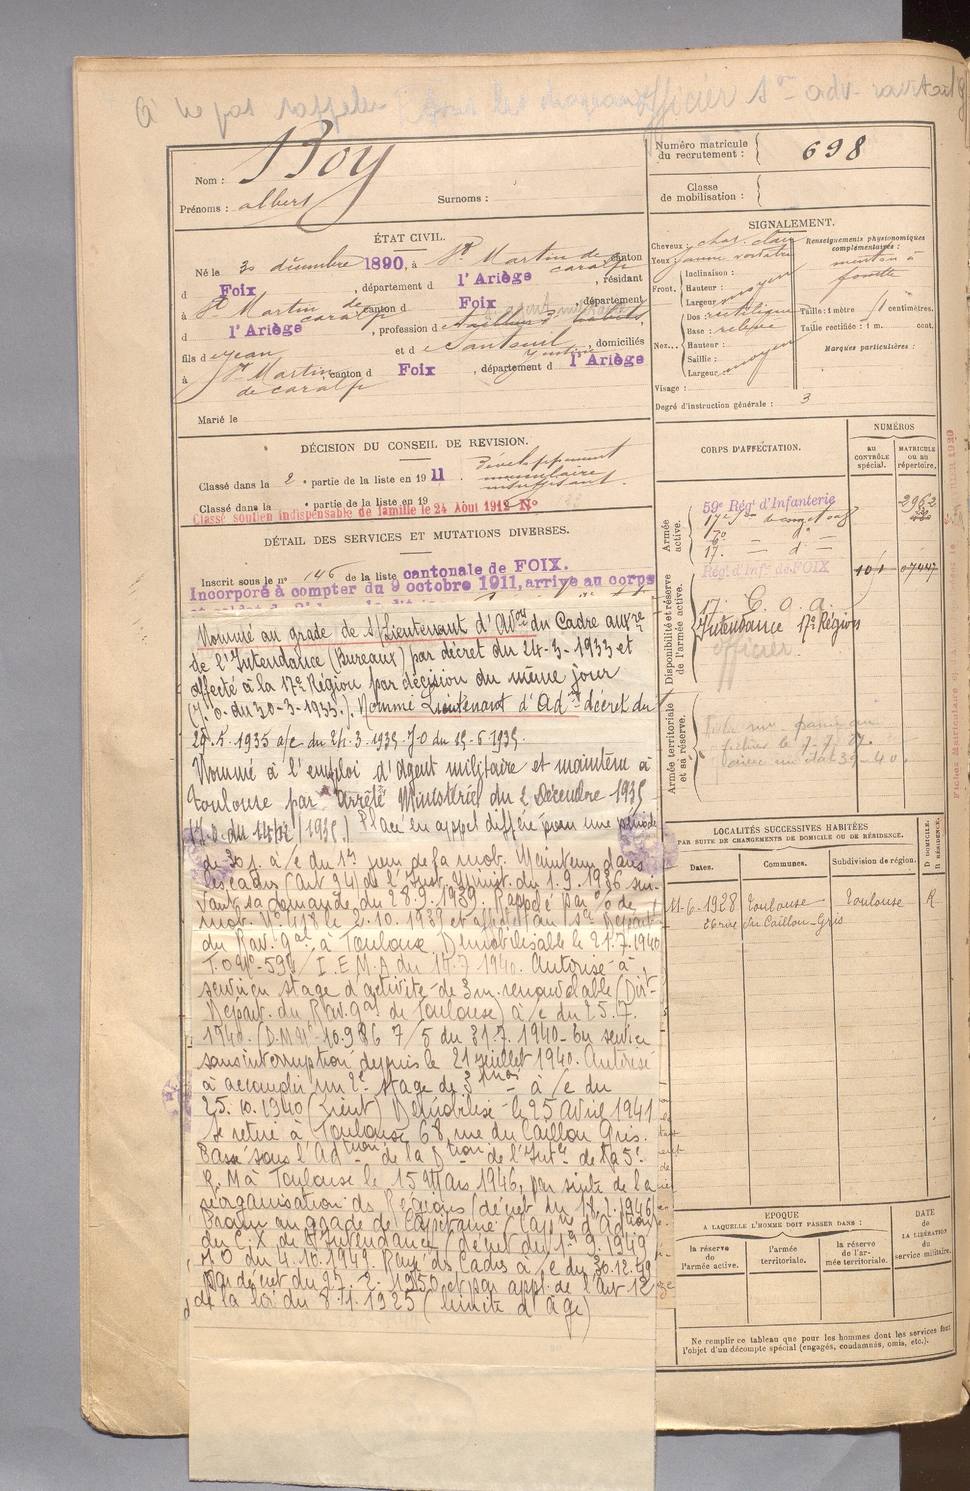 à ne pas rappeler officier s on adv. ravitail
Nom : Boy
Prénoms : albert Surnoms :
ÉTAT CIVIL.
Né le 30 décembre 1890, à St Martin de caralp canton
d Foix, département d l'Ariège, résidant
à St Martin de caralp canton d Foix, département
d l'Ariège, profession de tailleur d'habits,
fils de jean et de Santeuil Justine, domiciliés
à St Martin de caralp, canton d Foix, département d l'Ariège
Marié le
DÉCISION DU CONSEIL DE REVISION.
Classé dans la 2e partie de la liste en 1911 développement musculaire insuffisant.
Classé dans la e partie de la liste en 19
Classé soutien indispensable de famille le 24 Aout 1912 No
DÉTAIL DES SERVICES ET MUTATIONS DIVERSES.
Inscrit sous le no 146 de la liste cantonale de FOIX.
Incorporé à compter du 9 octobre 1911, arrive au corps
Nommé au grade de s/Lieutenant d'Adon du Cadre auxre
de l'Intendance (Bureaux) par décret du 24-3-1933 et
affecté à la 17e Région par décision du même jour
(J.O. du 30-3-1933.). Nommé Lieutenant d'Ad décret du
29.5.1935 a/c du 24.3.1935. JO du 15-6-1935.
Nommé à l'emploi d'Agent militaire et maintenu à
Toulouse par Arrêté Ministériel du 2 Décembre 1935
Placé en appel différé pour une période
de 30 j. a/c du 1er jour de la mob. Maintenu dans
les cadres (art 24) de l'Inst. Minist. du 1.9.1936 sui-
vant sa demande du 28.9.1939. Rappelé par o/o de
mob. No 418 le 2.10.1939 et affecté au
du Rav. Gal à Toulouse Démobilisable le 21.7.1940
T.O. No 598/I.E.M.A du 14.7.1940. Autorisé à
servir en stage d'activité de 3 m. renouvelable (Dir.
Départ. du Rav. Gal de Toulouse) a/c du 25.7.
1940. (D.M. No 10.986 7/5 du 31.7.1940 - En service
sans interruption depuis le 21 Juillet 1940. Autorisé
à accomplir un 2e stage de 3 mois à/c du
25.10.1940 Démobilisé le 25 Avril 1941
Se retire à Toulouse 68, rue du Caillou Gris.
Passé sous l'Adtion de la Dtion de l'Int. de la 5e
R.M à Toulouse le 15 Mars 1946, par suite de la
réorganisation des Régions (décret du 18.2.1946)
Promu au grade de Capitaine
du C.X de l'Intendance (décret du 1.9.1949
JO du 4.10.1949. Rayé des Cadres à/c du 30.12.49
par décret du 27.2.1950 et par appl. de l'art 12
de la loi du 8.1.1925 (limite d'âge)
Numéro matricule du recrutement : 698
Classe de mobilisation :
SIGNALEMENT.
Cheveux : chat. clair
Yeux : jaune
Front. Inclinaison :
Hauteur :
Largeur moyen
Nez... Dos : rectiligne
Base : relevée
Hauteur :
Saillie :
Largeur moyen
Visage :
Renseignements physionomiques complémentaires :
menton à
fossette
Taille : 1 mètre centimètres.
Taille rectifiée : 1 m. cent.
Marques particulières :
Degré d'instruction générale : 3
CORPS D'AFFECTATION.
NUMÉROS
au CONTRÔLE spécial.
MATRICULE ou au répertoire.
Armée active.
59e Régt d'Infanterie 2962
17e
Disponibilité et réserve de l'armée active.
Régt d'Infie de FOIX 101 07447
17e C.O.A.
Intendance 17e Région
officier
Armée territoriale et sa réserve.
LOCALITÉS SUCCESSIVES HABITÉES
PAR SUITE DE CHANGEMENTS DE DOMICILE OU DE RÉSIDENCE.
Dates. Communes. Subdivision de région. D. DOMICILE. R. RÉSIDENCE.
11-6-1928 Toulouse Toulouse R
rue du Caillou-Gris
EPOQUE
A LAQUELLE L'HOMME DOIT PASSER DANS :
la réserve de l'armée active.
l'armée territoriale.
la réserve de l'armée territoriale.
DATE de LA LIBÉRATION du service militaire.
Ne remplir ce tableau que pour les hommes dont les services font
l'objet d'un décompte spécial (engagés, condamnés, omis, etc.).